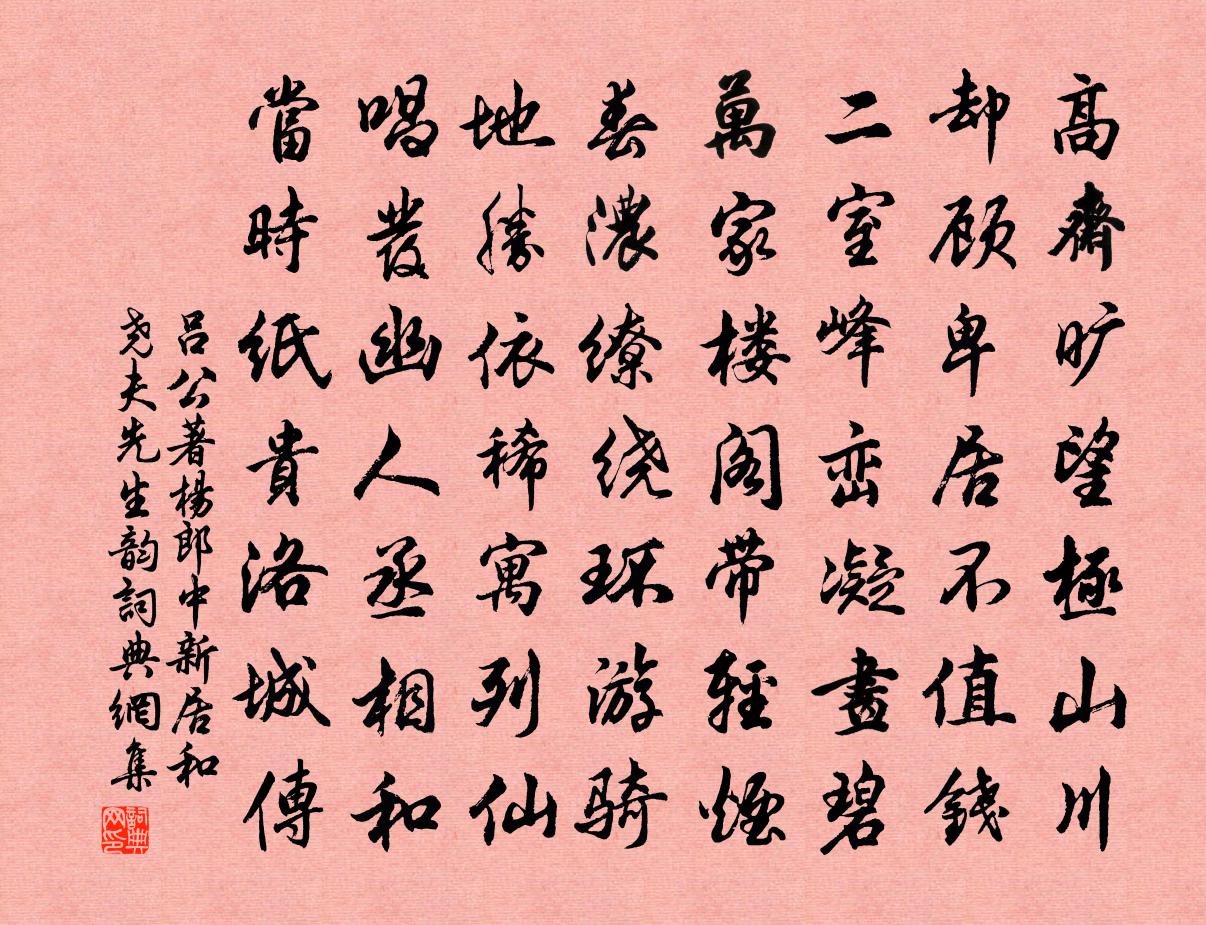 高齋旷望極山川
却顾卑居不值錢
二室峰峦凝畫碧
萬家楼阁带輕煙
春濃缭绕环游骑
地勝依稀寓列仙
唱發幽人丞相和
當時紙貴洛城傳
吕公著楊郎中新居和
尧夫先生韵詞典網集
詞典网印